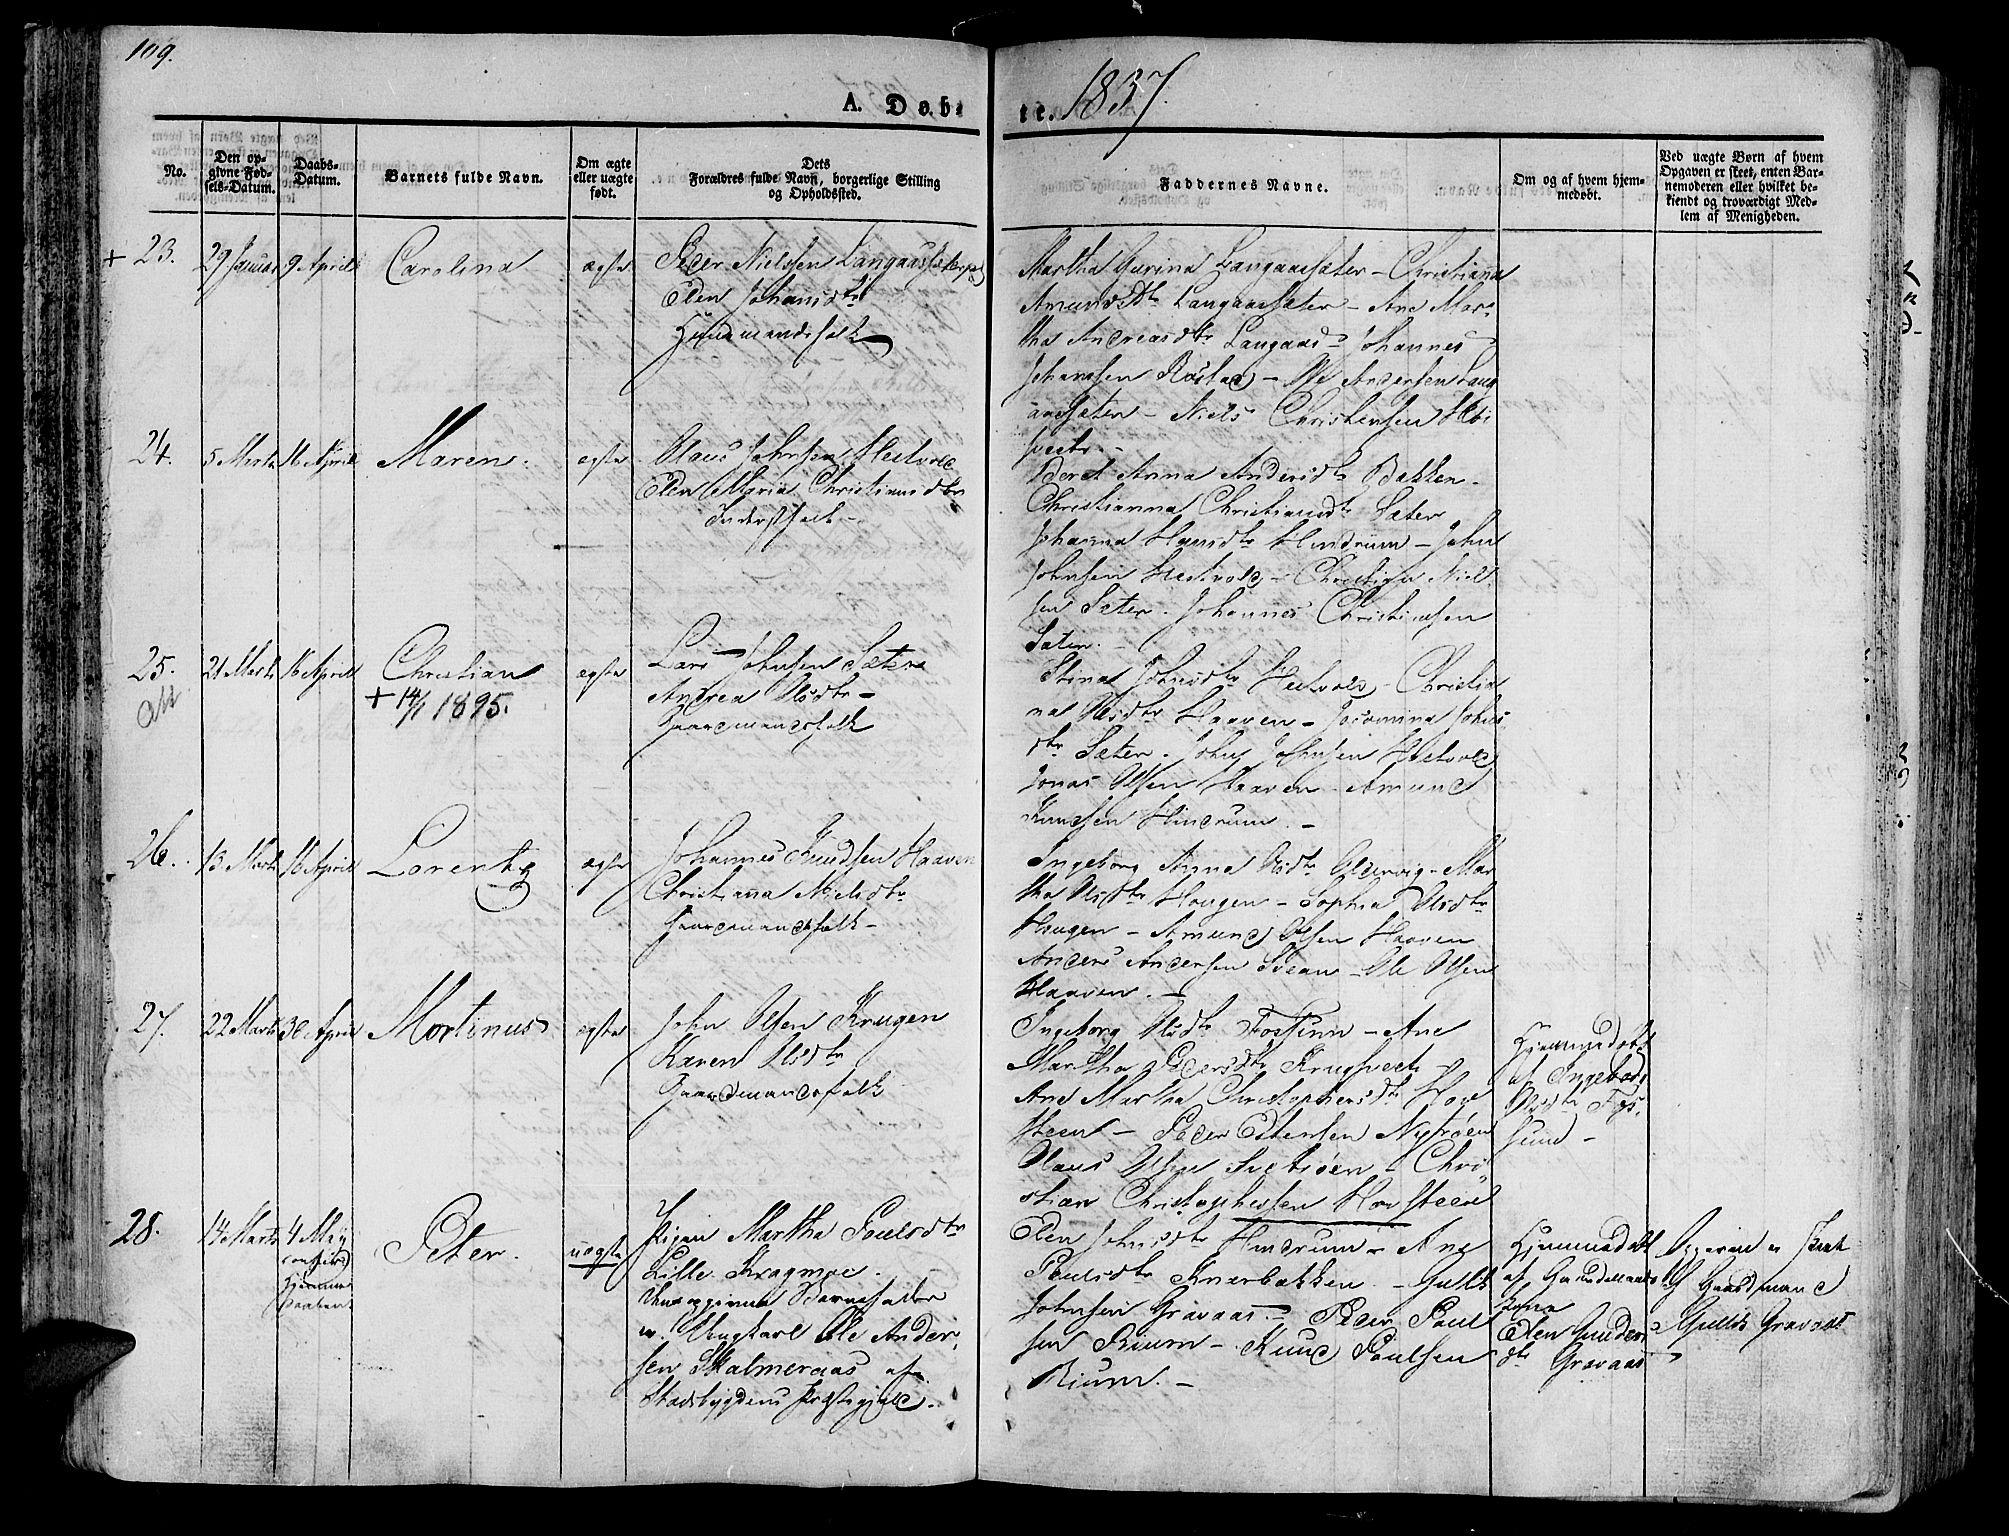 109.
A. Døb-
te. 1837.
No.
Den op-
givne Fød-
sels-Datum.
Daabs-
Datum.
Barnets fulde Navn.
Om ægte
eller uægte
født.
Dets
Forældres fulde Navn, borgerlige Stilling
og Opholdssted.
Faddernes Navne.
Om og af hvem hjem-
medøbt.
Ved uægte Børn af hvem
Opgaven er skeet, enten Bar-
nemoderen eller hvilket be-
kiendt og troværdigt Med-
lem af Menigheden.
+ 23.
29 Januar
9 April
Carolina
ægte
Peder Nielsen
Elen Johansdtr
Huusmandsfolk
Martha Gurina Langaassæter - Christianna
Amundsdtr Langaassæter - Ane Mar-
tha Andreasdtr Langaas - Johannes
Johansen - Ole Andersen Lang
aassæter - Niels Christensen
24.
5 Marts
16 April
Maren.
ægte
Claus Johnsen Hestvold
Elen Maria Christiansdtr
Inderstfolk -
Beret Anna Andersdtr Bakken -
Christianna Christiansdtr Sæter
Johanna Hansdtr Hindrum - John
Johnsen Hestvold - Christian Niel
sen Sæter. Johannes Christiansen
Sæter. -
25.
21 Marts
16 April
Christian
+ 14/1 1895.
ægte
Lars Johnsen Sæter
Andrea Olsdtr -
Gaardmandsfolk
Stina Johnsdtr Hestvold - Christia
na Olsdtr Haaven - Johns
dtr Sæter - John Johnsen Hestvold
Jonas Olsen Haaven - Amund
Knudsen Hindrum. -
26.
13 Marts
16 April
Lorentz
ægte
Johannes Knudsen Haaven
Christianna Nielsdtr
Gaardmandsfolk -
Ingeborg Anna Olsdtr Oldervig - Mar
tha Olsdtr Hougen - Sophia Olsdtr
Hougen - Amund Olsen Haaven
Anders Andersen Svean - Ole Olsen
Haaven. -
27.
22 Marts
30 April
Mortinus
ægte
John Olsen Krugen
Karen Olsdtr
Gaardmandsfolk
Ingeborg Olsdtr Fossum - Ane
Martha Pedersdtr -
Ane Martha Christophersdtr Hov
steen - Peder Estensen Nyrøen
Claus Olsen - Chri
stian Christophersen Hovsteen
Hjemmedøbt
af Ingeborg
Olsdtr Fos
sum -
28.
14 Marts
4 Mai
Hjemme
daaben
Peter.
uægte
Pigen Martha Poulsdtr
Lille Kragmoe.
Barnefader
er Ungkarl Ole Ander-
sen Skalmeraas af
Stadsbygdens Præstegjeld.
Elen Johnsdtr Hindrum - Ane
Poulsdtr Knarbakken. - Gullik
Johnsen Gravaas - Peder Poul
sen Rium - Knud Poulsen
Rium. -
Hjemmedøbt
af Gaardmands
kone
Elen Gunders
dtr Gravaas
Opgaven er skeet
af Gaardmand
Gullik Gravaas